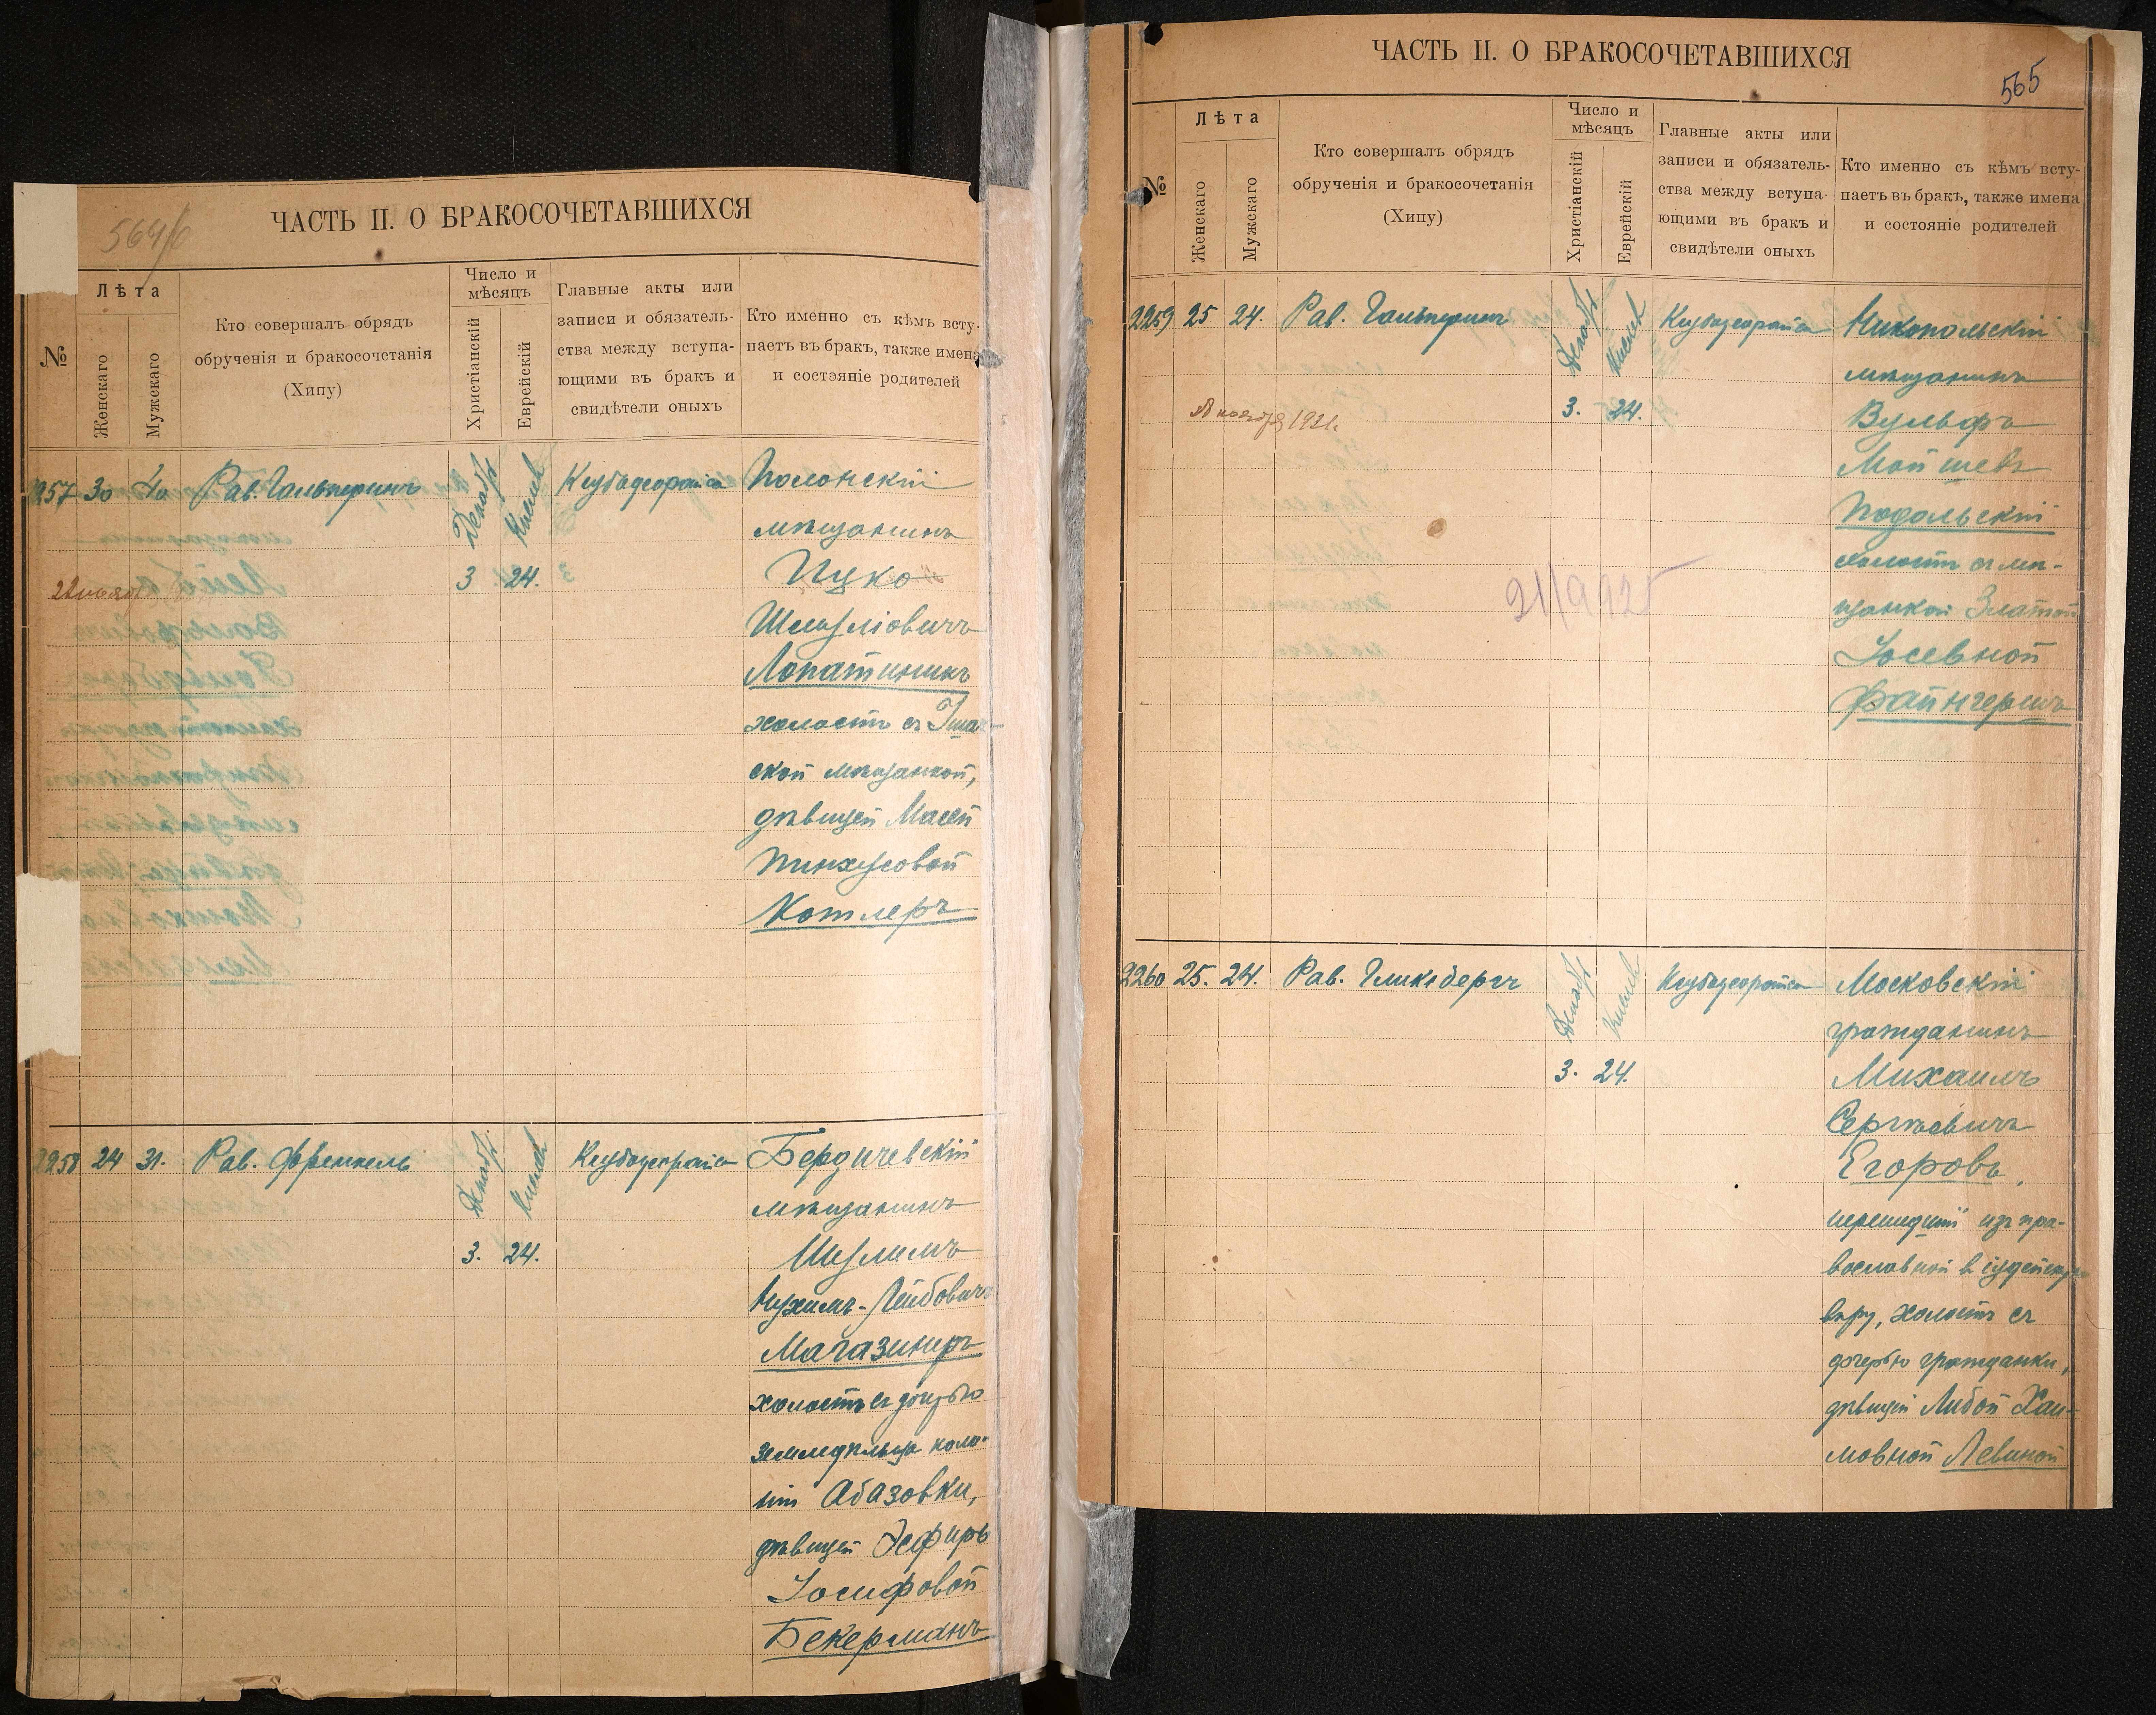 564/б
ЧАСТЬ II. О БРАКОСОЧЕТАВШИХСЯ
№
Лѣта
Женскаго
Мужскаго
Кто совершалъ обрядъ
обрученія и бракосочетанія
(Хипу)
Число и
мѣсяцъ
Христіанскій
Еврейскій
Главные акты или
записи и обязатель-
ства между вступа-
ющими въ бракъ и
свидѣтели оныхъ
Кто именно съ кѣмъ всту-
паетъ въ бракъ, также имена
и состояніе родителей
30
40
Рав. Гальперинъ
Декабрь
Кислев
3
24.
Полонскій
мѣщанинъ
Ицко
Шмуліовичъ
Лопатникъ
холостъ съ
ской мѣщанкой,
дѣвицей Масей
Пинхусовой
Котлеръ
2258
24
31.
Рав. Френкель
Декабрь
Кислев
3.
24.
Бердичевскій
мѣщанинъ
Шулимъ
Нухимъ-Лейбовичъ
Магазинеръ
холостъ съ дочерью
земледѣльца коло-
ніи Абазовки,
дѣвицей Эсфирь
Іосифовой
Бекерманъ
ЧАСТЬ II. О БРАКОСОЧЕТАВШИХСЯ
565
№
Лѣта
Женскаго
Мужскаго
Кто совершалъ обрядъ
обрученія и бракосочетанія
(Хипу)
Число и
мѣсяцъ
Христіанскій
Еврейскій
Главные акты или
записи и обязатель-
ства между вступа-
ющими въ бракъ и
свидѣтели оныхъ
Кто именно съ кѣмъ всту-
паетъ въ бракъ, также имена
и состояніе родителей
2259
25
24.
Рав. Гальперинъ
Декабрь
Кислев
3.
24.
Никопольскій
мѣщанинъ
Вульфъ
Мойшевъ
Подольскій
холостъ съ мѣ-
щанкой Златой
Іосевной
Файнгершъ
2260
25.
24.
Рав. Гликсбергъ
Декабрь
Кислев
3.
24.
Московскій
гражданинъ
Михаилъ
Сергѣевичъ
Егоровъ,
перешедшій изъ пра-
вославной в іудейскую
вѣру, холостъ съ
дочерью гражданки,
дѣвицей Либой Хаи-
мовной Левиной